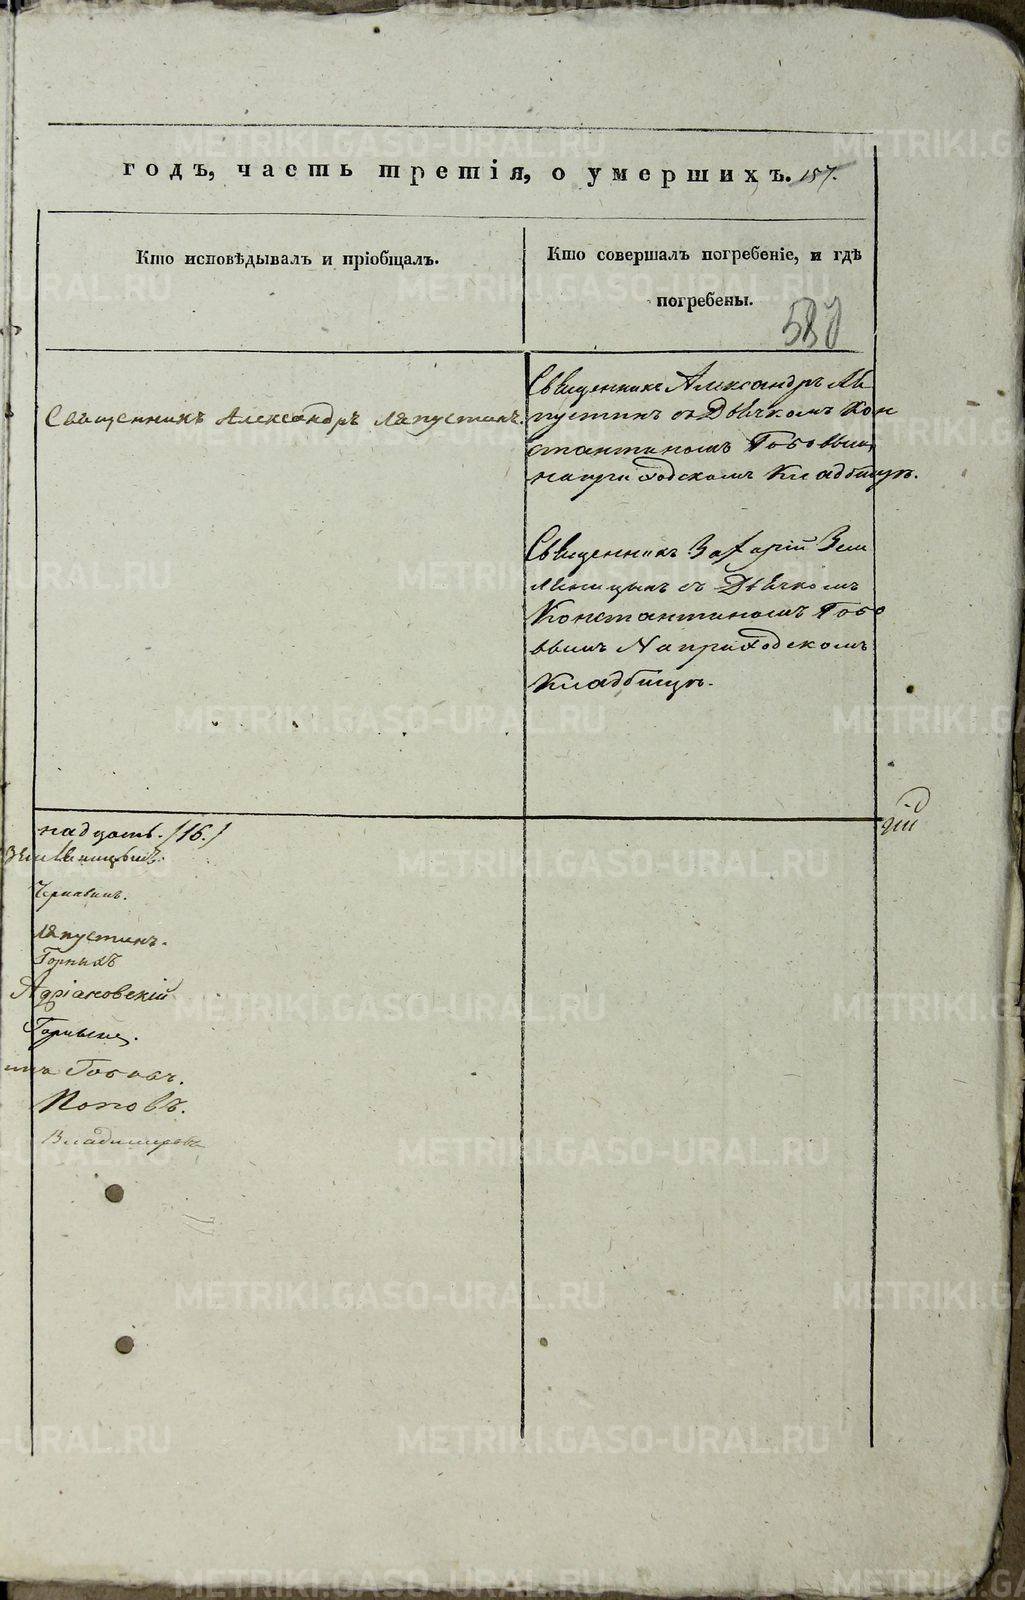 годъ, часть третія, о умершихъ. 157.
Кто исповѣдывалъ и пріобщалъ.
Кто совершалъ погребеніе, и гдѣ
погребены.
Священникъ Александръ Ляпустинъ.
Священникъ Александръ Ля
пустинъ съ Дьячкомъ Кон
стантиномъ
на приходскомъ Кладбищѣ.
Священникъ Захарій Зем
ляницынъ съ Дьячкомъ
Константиномъ
На приходскомъ
Кладбищѣ.
надцать. (16.)
Земляницынъ.
Чернавинъ.
Ляпустинъ.
Горныхъ
Адріановскій
Поповъ.
Владимеровъ
METRIKI.GASO-URAL.RU